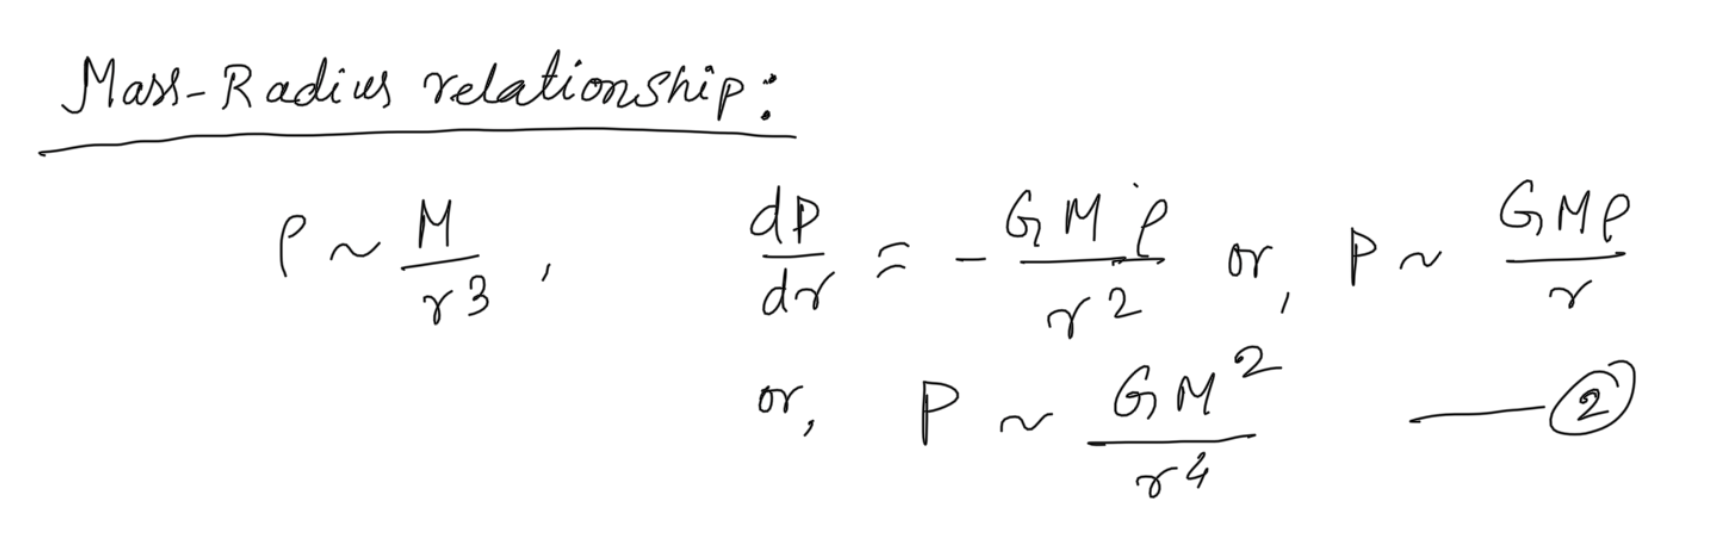 Mass-Radius relationship:
ρ ~ M/r³ , dP/dr = - GMρ/r² or, P ~ GMρ/r
or, P ~ GM²/r⁴ —— ②